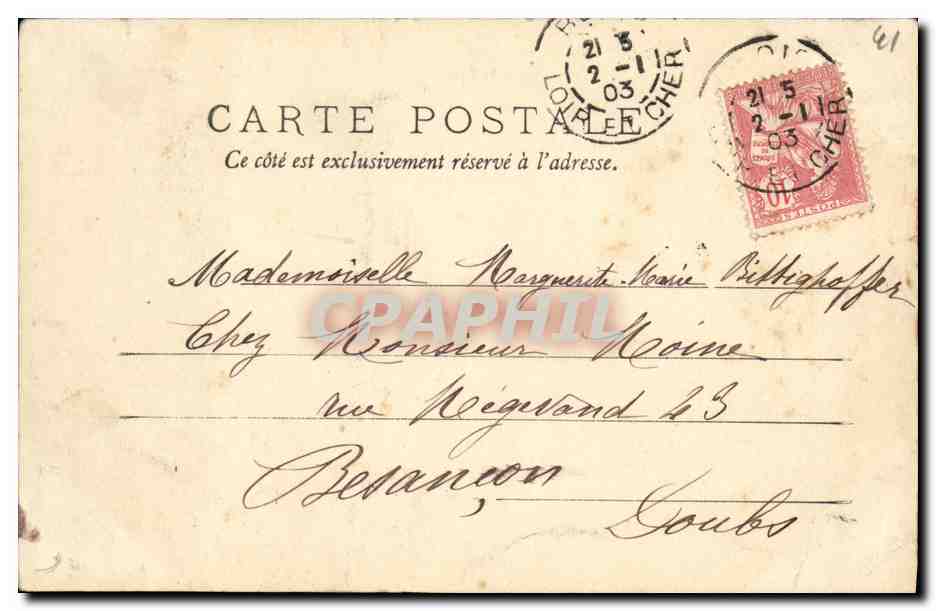 41
21 5
2 -1
03
LOIR ET CHER
21 5
2 -1
03
CHER
10
POSTES
CARTE POSTALE
Ce côté est exclusivement réservé à l'adresse.
Mademoiselle Marguerite-Marie Bittighoffer
CPAPHIL
Chez Monsieur Moine
rue Mégevand 23
Besançon
Doubs